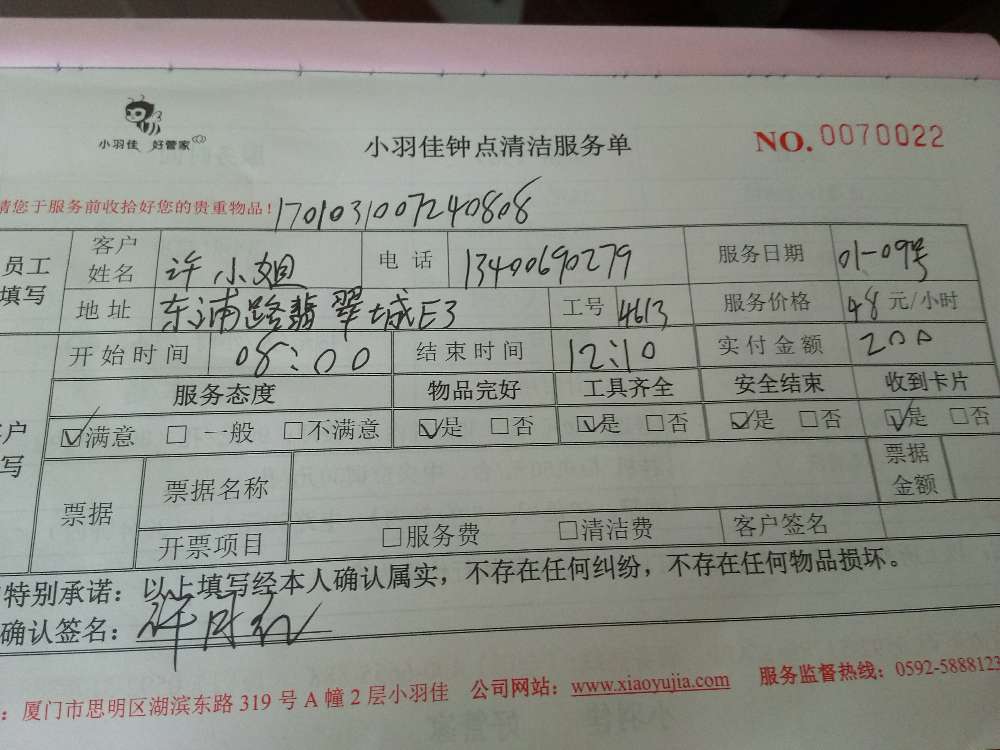 小羽佳 好管家
小羽佳钟点清洁服务单
NO. 0070022
请您于服务前收拾好您的贵重物品! 1701031007240808
员工填写 客户姓名 许小姐 电话 13400690279 服务日期 01-09号
地址 东浦路翡翠城E3 工号 4613 服务价格 48 元/小时
开始时间 08:00 结束时间 12:10 实付金额 200
服务态度 物品完好 工具齐全 安全结束 收到卡片
☑满意 □一般 □不满意 ☑是 □否 ☑是 □否 ☑是 □否 ☑是 □否
票据 票据名称 票据金额
开票项目 □服务费 □清洁费 客户签名
特别承诺:以上填写经本人确认属实,不存在任何纠纷,不存在任何物品损坏。
确认签名:许
厦门市思明区湖滨东路 319 号 A 幢 2 层小羽佳 公司网站:www.xiaoyujia.com 服务监督热线:0592-5888123